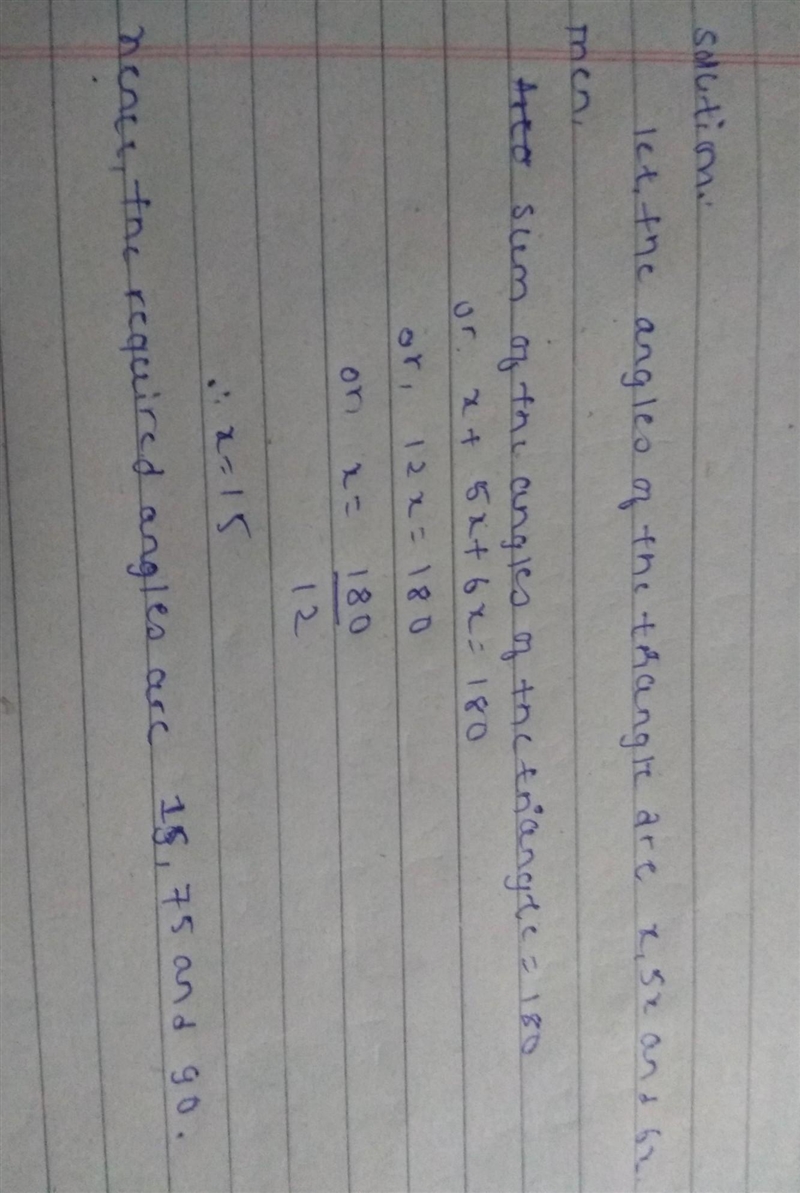 Solution:
let, the angles of the triangle are x, 5x and 6x.
Then,
sum of the angles of the triangle = 180
or. x + 5x + 6x = 180
or, 12x = 180
or, x = 180
12
∴ x = 15
Hence, the required angles are 15, 75 and 90.